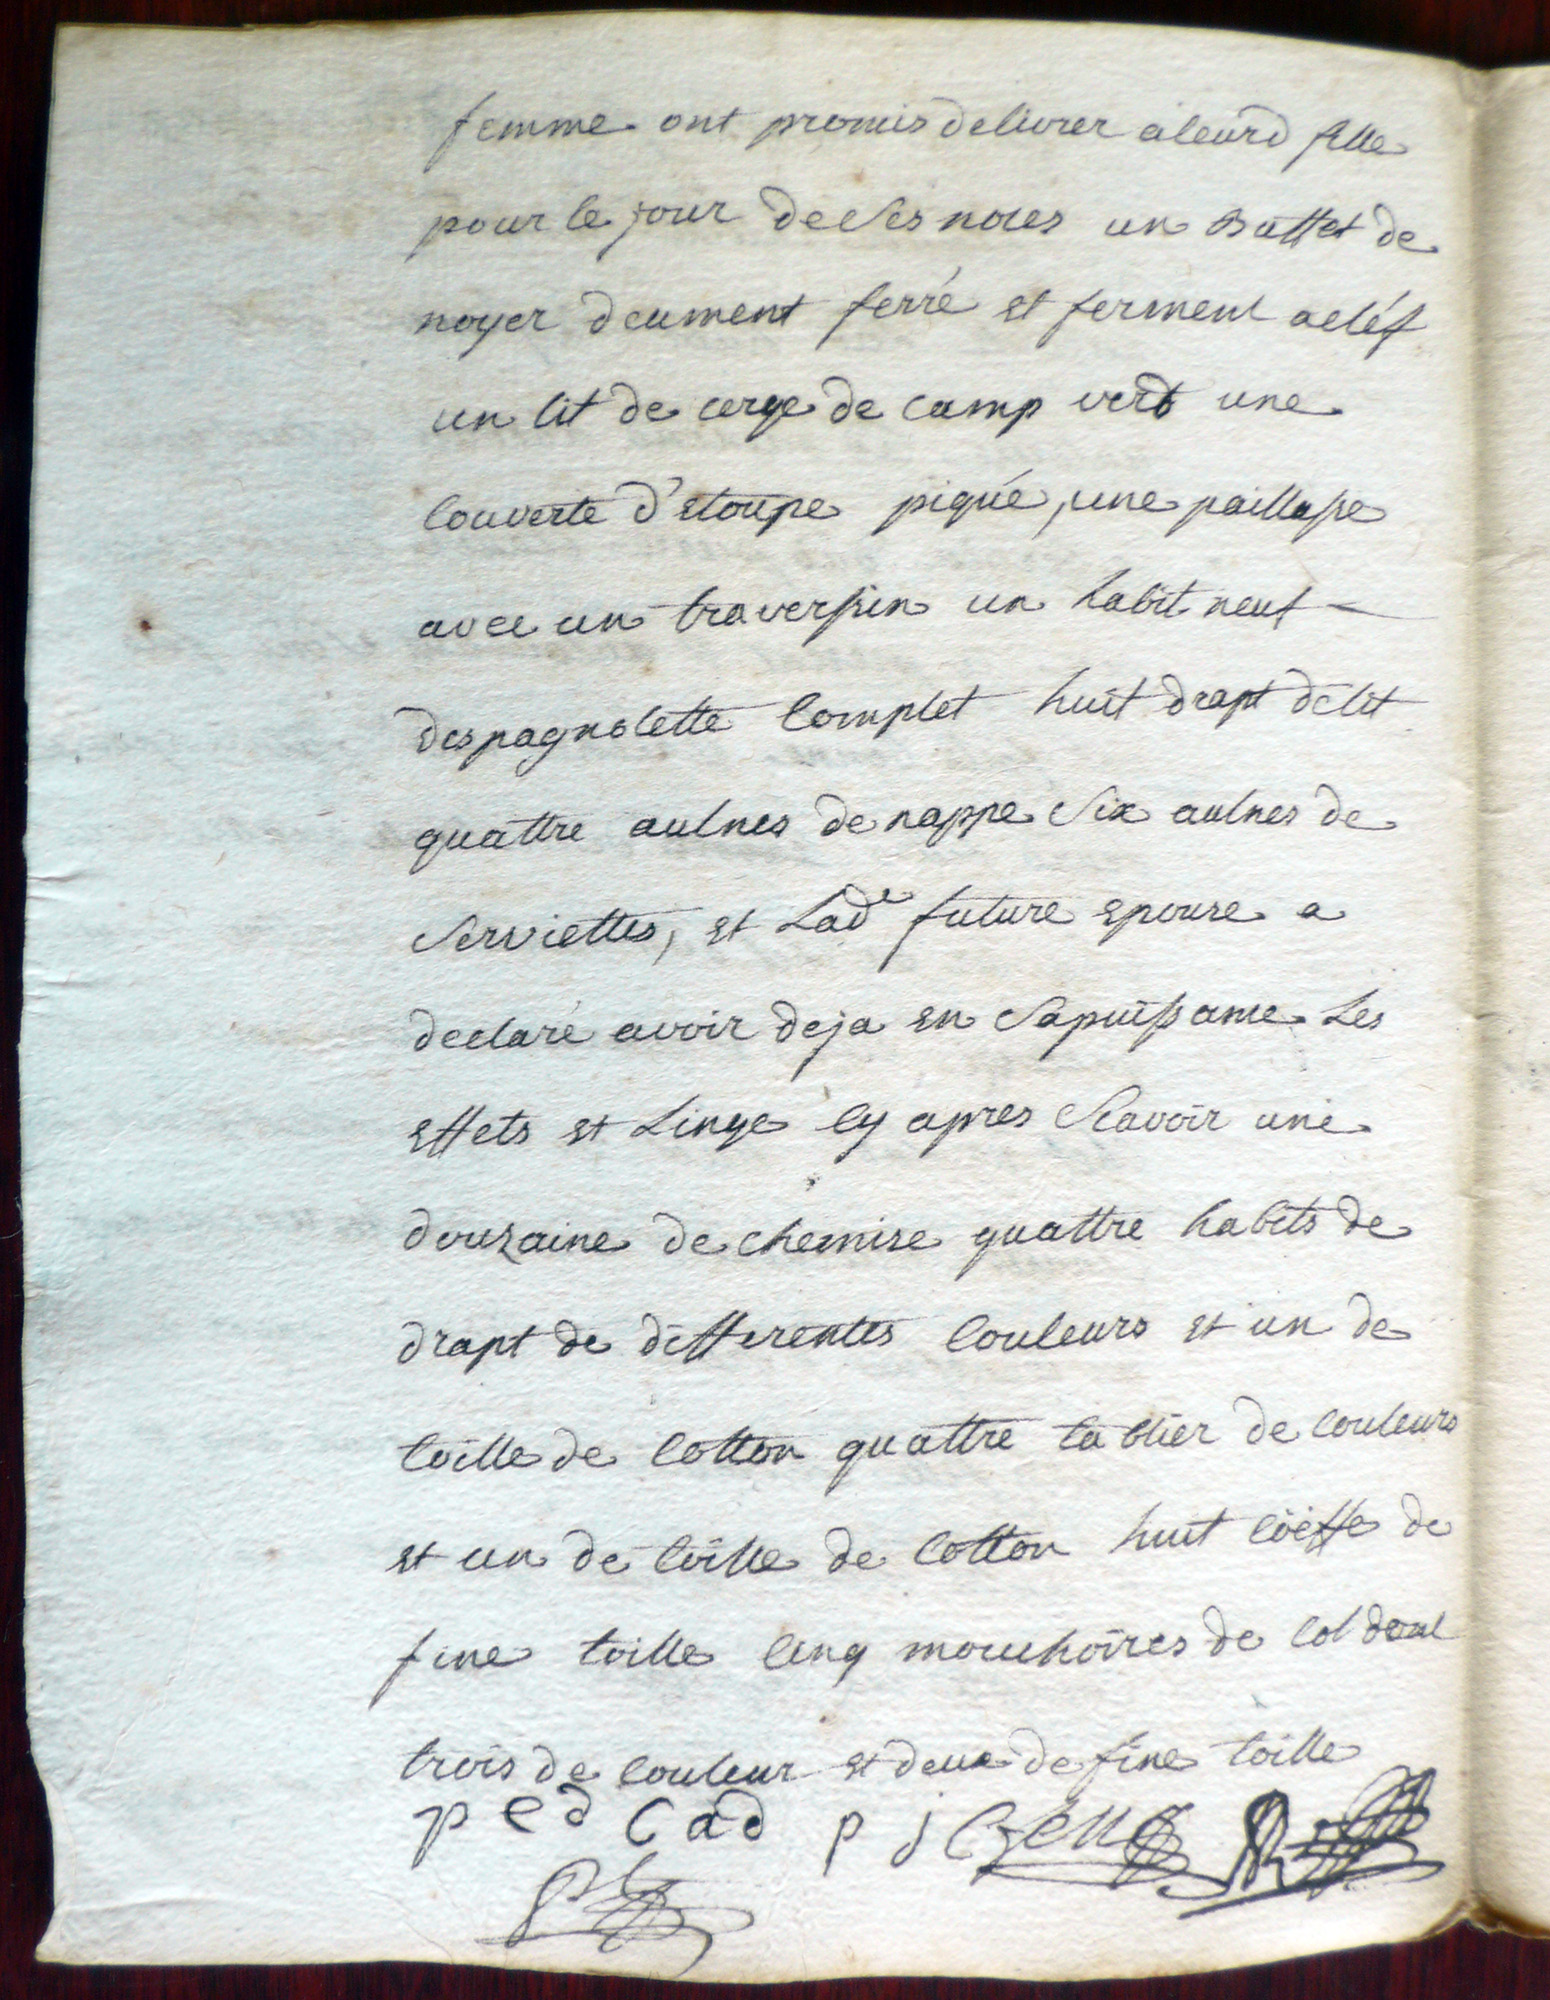 femme ont promis delivrer aleurd fille
pour le jour de ses noces un Buffet de
noyer deument ferré et ferment acléf
un lit de cerge de camp verd une
couverte d'etoupe piquée, une paillasse
avec un traverssin un habit neuf
despagnolette complet huit drapt delit
quattre aulnes de nappe six aulnes de
serviettes, et Lade future epouse a
declaré avoir deja en sapuissance Les
effets et Linge cy apres scavoir une
douzaine de chemise quattre habits de
drapt de differentes couleurs et un de
toille de cotton quattre tablier de couleurs
et un de toille de cotton huit coëffe de
fine toille cinq mouchoires de col dont
trois de couleur et deux de fine toille
p e d c a d p j c